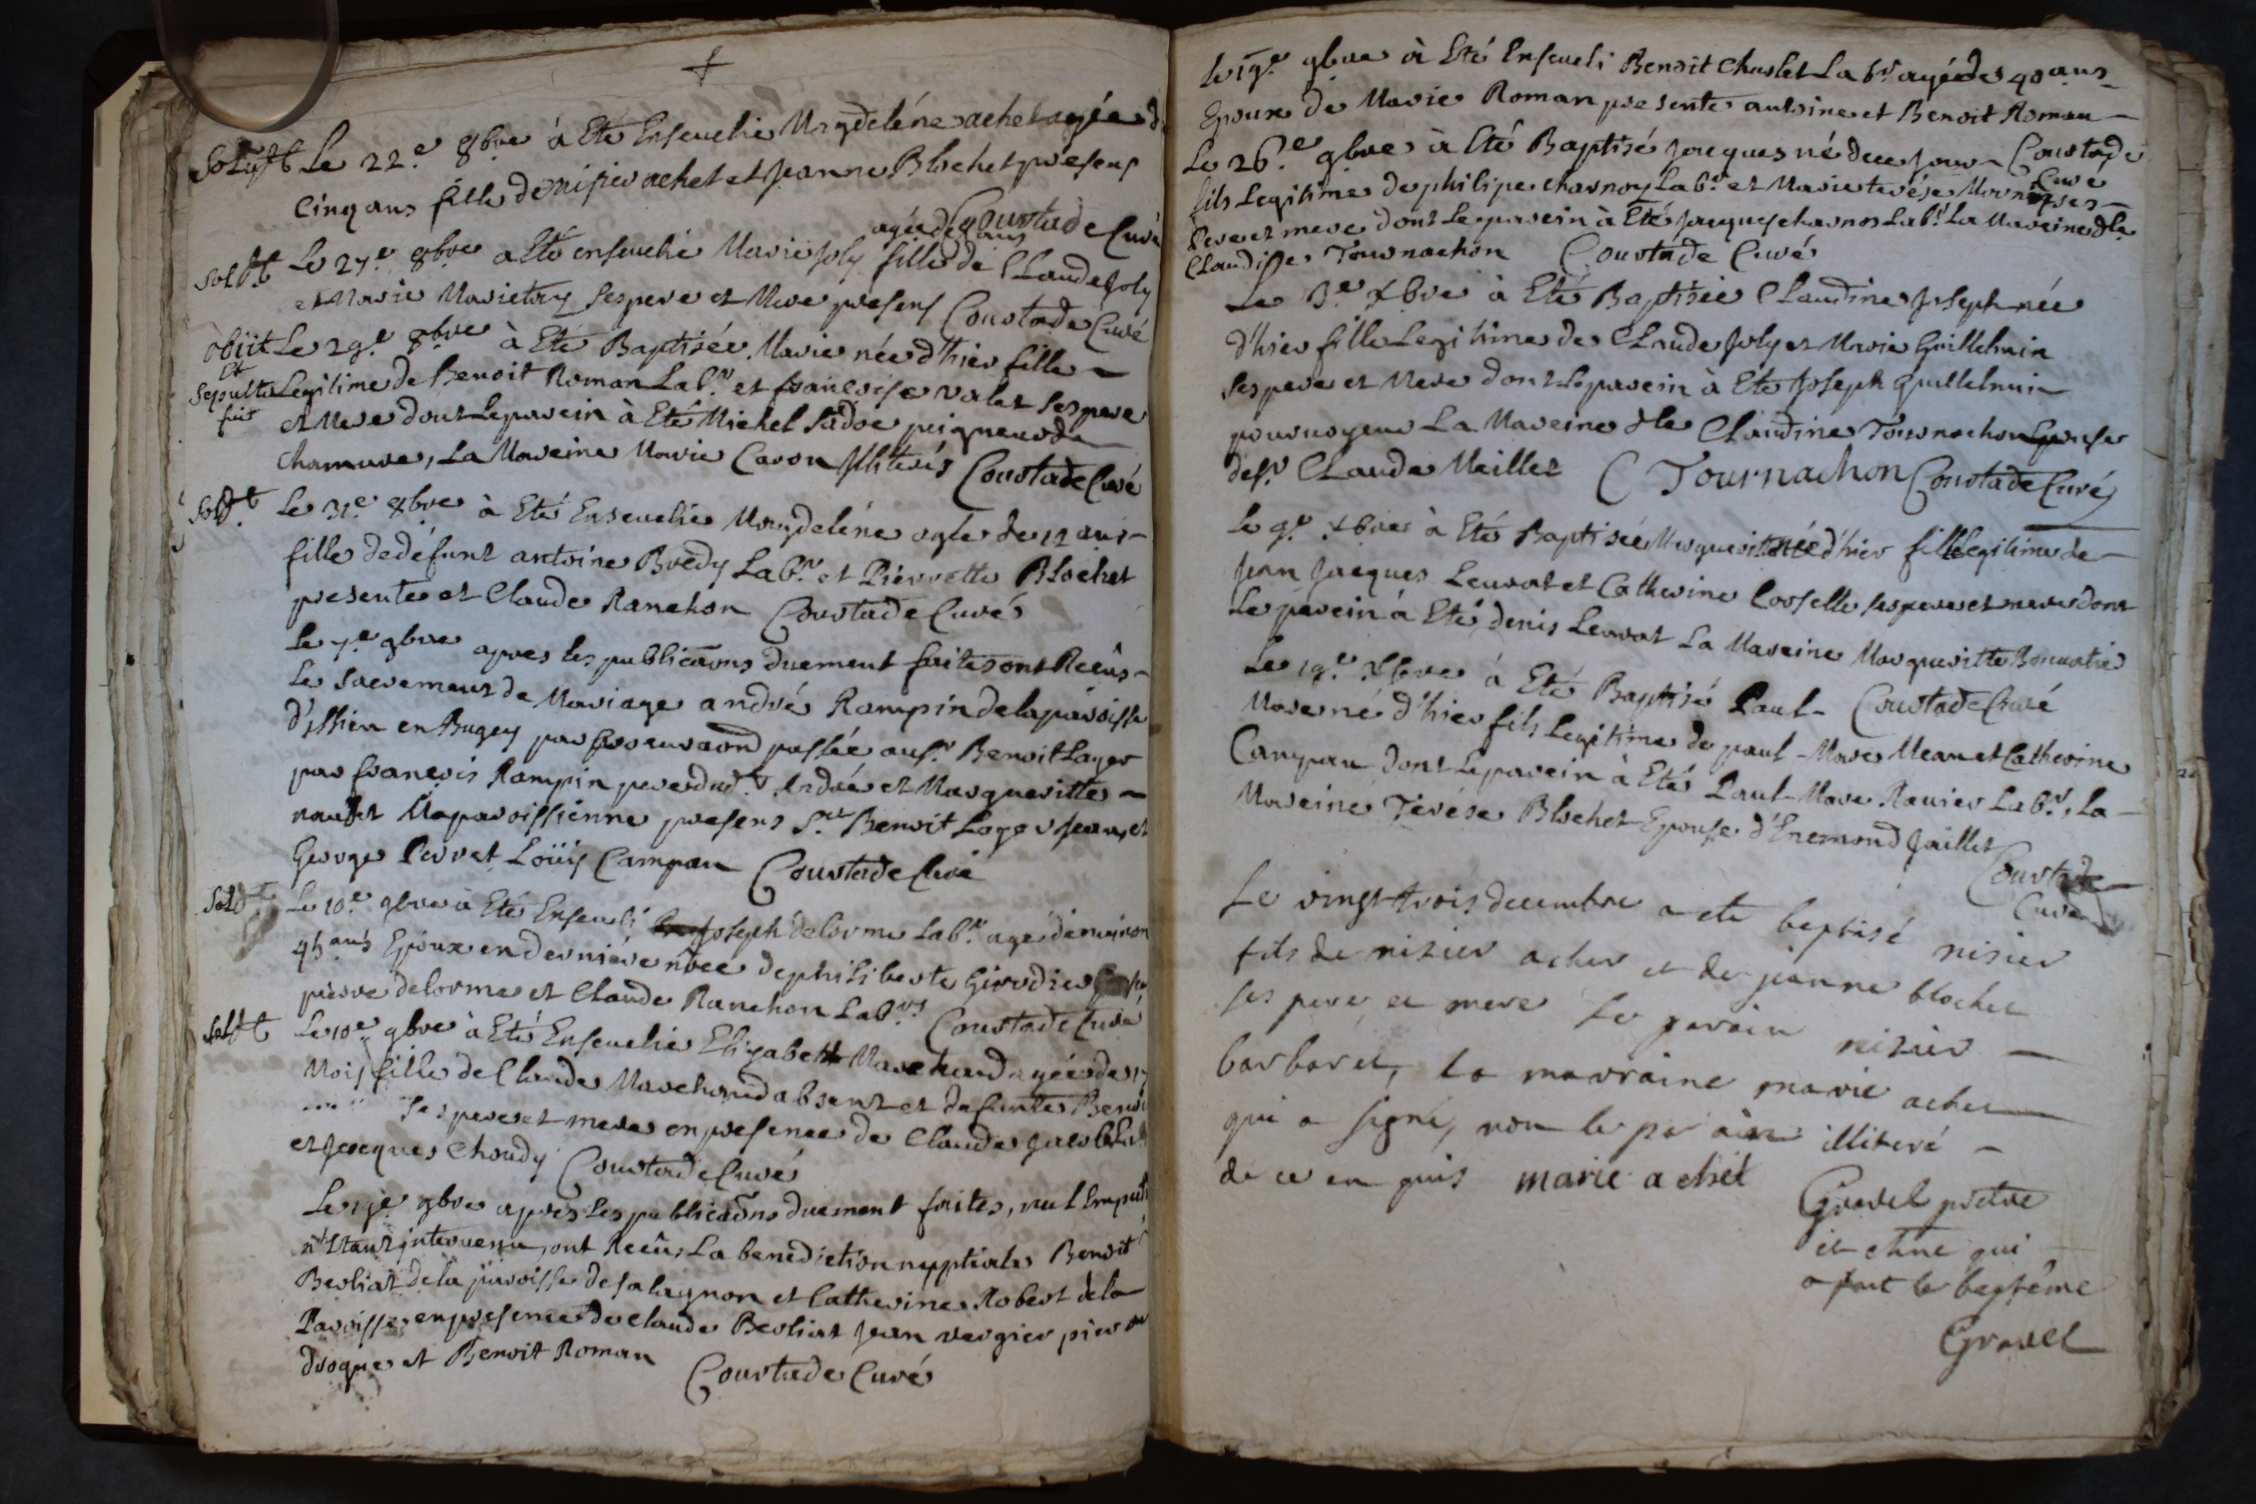 Le 22.e 8bre à Eté Ensevelie Magdeléne achet agée de
Cinq ans fille de nisier achet et Jeanne Blochet presens
Coustade Curé
agée de ans
Le 27.e 8bre a Eté ensevelie Marie Joly fille de Claude Joly
et Marie ses pere et Mere presens Coustade Curé
obiit Le 29.e 8bre à Eté Baptisée Marie née d'hier fille
et
sepulta Legitime de Benoit Roman Lab.r et francoise valet ses pere
fuit et Mere dont Le parein à Eté Michel peigneur de
chamvre, La Mareine Marie Caron Illiterés Coustade Curé
Le 31.e 8bre à Eté Ensevelie Magdeléne agée de 12 ans
fille de défunt antoine Bredy Lab.r et Pierrette Blochet
presente et Claude Ranchon Coustade Curé
Le 7.e 9bre apres les publicaons duement faites ont Reçûs
Le Sacrement de Mariage andré Rampin de la paroisse
en Bugey par procuraon passée au s.r Benoit Loger
par françois Rampin pere dud.t André et Margueritte
Ma paroissienne presens S.r Benoit Loger Jean, et
George Perret Loüis Campan Coustade Curé
Le 10.e 9bre à Eté Enseveli Joseph delorme Lab.r agé d'environ
45 ans Epoux en derniére nôce de philiberte Girodier
pierre delorme et Claude Ranchon Lab.rs Coustade Curé
Le 10.e 9bre à Eté Ensevelie Elizabeth Marchand agée de 17
Mois fille de Claude Marchand absent et defunte
ses pere et mere en presence de Claude
et Jacques Choudy Coustade Curé
Le 17.e 9bre aprés Les publicaons duement faites, nul Empech
n'Etant intervenu, ont Reçûs La benediction nuptiale Benoit
Berliat de la paroisse de salagnon et Catherine Robert de la
Paroisse en presence de Claude Berliat Jean vergier pierre
drogue et Benoit Roman Coustade Curé
Le 19.e 9bre à Eté Enseveli Benoit Charlet Lab.r agé de 40 ans
Epoux de Marie Roman presente antoine et Benoit Roman
Le 26.e 9bre à Eté Baptisé Jacques né de ce Jour Coustade
Curé
fils Legitime de philipe charnoy Lab.r et Marie terése ses
Pere et mere dont Le parein à Eté Jacques charnos Lab.r La Mareine dlle
Claudine Tournachon Coustade Curé
Le 3.e Xbre à Eté Baptisée Claudine Joseph née
d'hier fille Legitime de Claude Joly et Marie Guillelmin
ses pere et Mere dont Le parein à Eté Joseph Guillelmin
pourvoyeur La Mareine dlle Claudine Tournachon Epouse
de s.r Claude Meillet C Tournachon Coustade Curé
Le 9.e Xbre à Eté Baptisée Marguerite née d'hier fille Legitime de
Jean Jacques Leuvat et Catherine Corselle ses pere et mere dont
Le parein à Eté denis Leuvat La Mareine Margueritte
Le 19.e Xbre à Eté Baptisé Paul- Coustade Curé
Marc né d'hier fils Legitime de paul-Marc Mean et Catherine
Campan dont Le parein à Eté Paul-Marc Lab.r, La
Mareine Terése Blochet Epouse d'Enemond Jaillet
Coustade
Curé
Le vingt trois decembre a ete baptisé nisier
fils de nisier achet et de jeanne blochet
ses pere et mere Le parain nisier
barbaret, la marraine marie achet
qui a signé, non le parain illiteré
de ce en quis marie achet
Gravel prêtre
a fait le baptême
Gravel